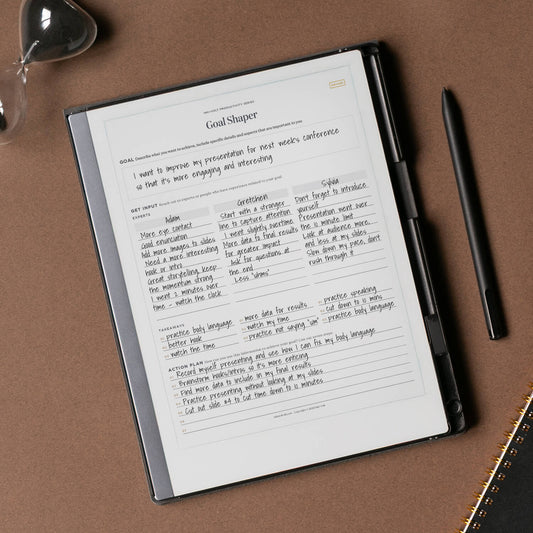 Goal Shaper
GOAL Describe what you want to achieve, include specific details and aspects that are important to you
I want to improve my presentation for next week's conference
so that it's more engaging and interesting
GET INPUT Reach out to experts or people who have experience related to your goal
EXPERTS
Adam
More eye contact
Good enunciation
Add more images to slides
Need a more interesting
hook or intro
Great storytelling, keep
the momentum strong
I went 2 minutes over
time - watch the clock
Gretchen
Start with a stronger
line to capture attention
I went slightly overtime
More data to final results
for greater impact
Ask for questions at
the end
Less "uhms"
Sylvia
Don't forget to introduce
yourself
Presentation went over
the 10 minute limit
Look at audience more,
and less at my slides
Slow down my pace, don't
rush through it
TAKEAWAYS
practice body language
better hook
watch the time
more data for results
watch my time
practice not saying "um"
practice speaking
cut down to 10 mins
practice body language
ACTION PLAN
Record myself presenting and see how I can fix my body language
Brainstorm hooks/intros so it's more enticing
Find more data to include in my final results
Practice presenting without looking at my slides
Cut out slide #4 to cut time down to 10 minutes